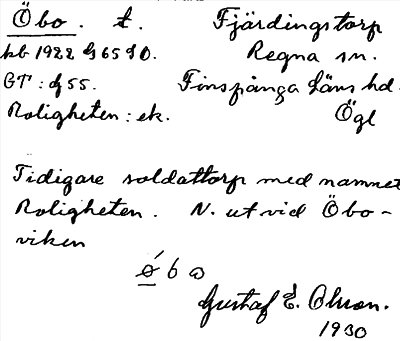 Öbo. t. Fjärdingstorp
kb 1922 G 65 90. Regna sn.
GT: G 55. Finspånga Läns hd.
Roligheten: ek. Ögl
Tidigare soldattorp med namnet
Roligheten. N. ut vid Öbo-
viken
Gustaf E. Olsson.
1930